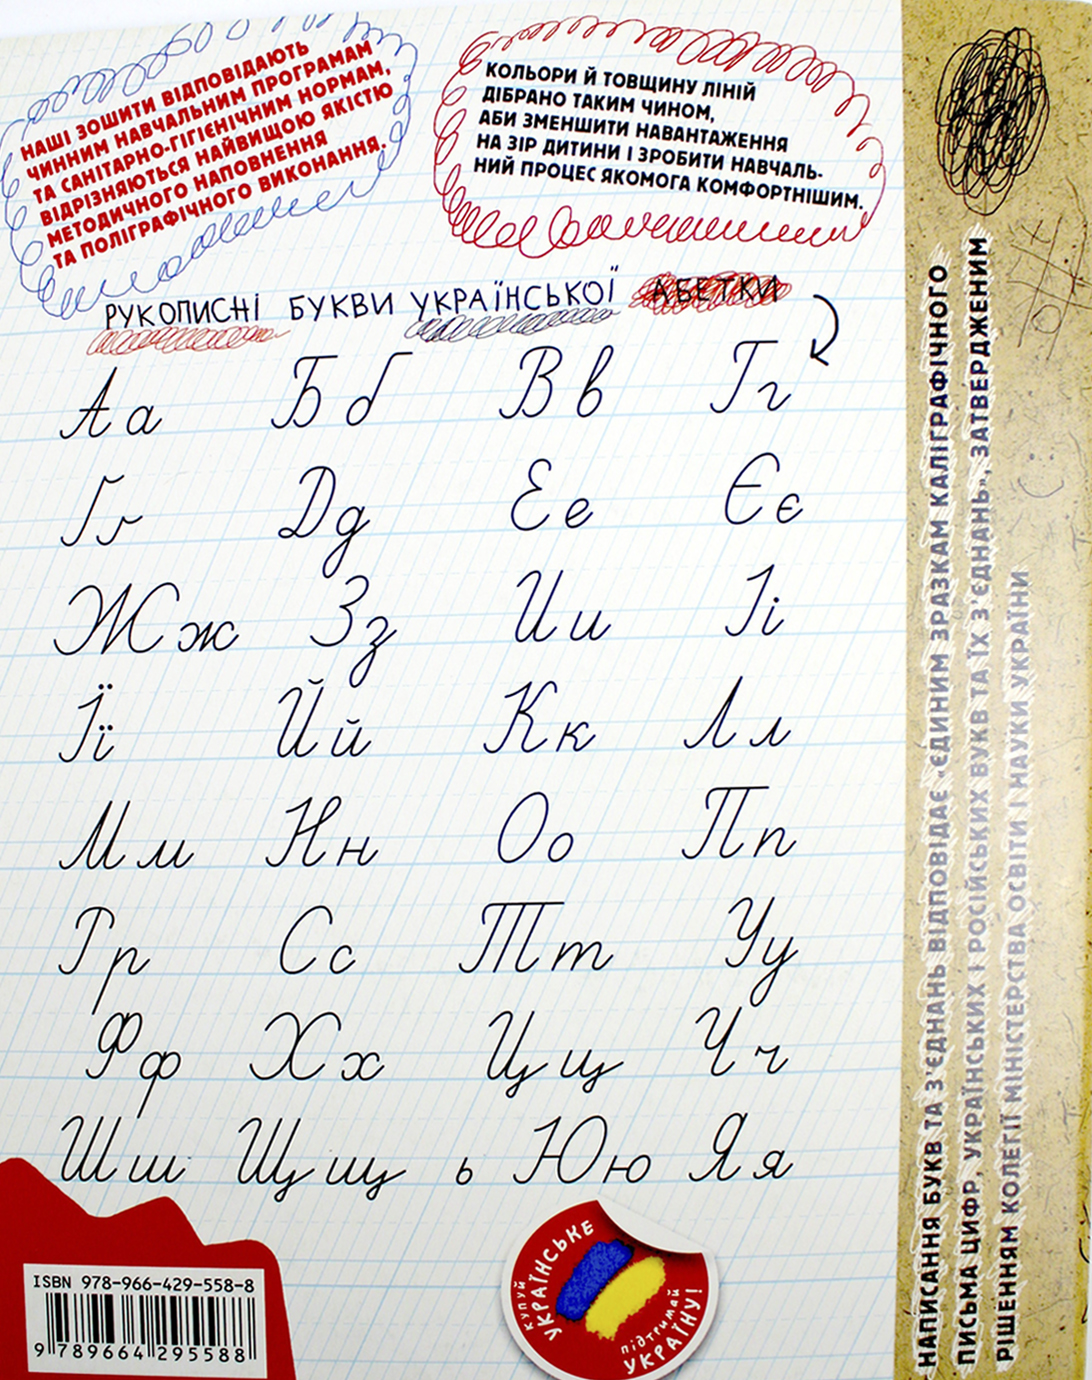 НАШІ ЗОШИТИ ВІДПОВІДАЮТЬ
ЧИННИМ НАВЧАЛЬНИМ ПРОГРАМАМ
ТА САНІТАРНО-ГІГІЄНІЧНИМ НОРМАМ,
ВІДРІЗНЯЮТЬСЯ НАЙВИЩОЮ ЯКІСТЮ
МЕТОДИЧНОГО НАПОВНЕННЯ
ТА ПОЛІГРАФІЧНОГО ВИКОНАННЯ.
КОЛЬОРИ Й ТОВЩИНУ ЛІНІЙ
ДІБРАНО ТАКИМ ЧИНОМ,
АБИ ЗМЕНШИТИ НАВАНТАЖЕННЯ
НА ЗІР ДИТИНИ І ЗРОБИТИ НАВЧАЛЬ-
НИЙ ПРОЦЕС ЯКОМОГА КОМФОРТНІШИМ.
РУКОПИСНІ БУКВИ УКРАЇНСЬКОЇ АБЕТКИ
Аа Бб Вв Гг
Ґґ Дд Ее Єє
Жж Зз Ии Іі
Її Йй Кк Лл
Мм Нн Оо Пп
Рр Сс Тт Уу
Фф Хх Цц Чч
Шш Щщ ь Юю Яя
НАПИСАННЯ БУКВ ТА З'ЄДНАНЬ ВІДПОВІДАЄ «ЄДИНИМ ЗРАЗКАМ КАЛІГРАФІЧНОГО
ПИСЬМА ЦИФР, УКРАЇНСЬКИХ І РОСІЙСЬКИХ БУКВ ТА ЇХ З'ЄДНАНЬ», ЗАТВЕРДЖЕНИМ
РІШЕННЯМ КОЛЕГІЇ МІНІСТЕРСТВА ОСВІТИ І НАУКИ УКРАЇНИ
ISBN 978-966-429-558-8
9 789664 295588
КУПУЙ
УКРАЇНСЬКЕ
підтримай
УКРАЇНУ!